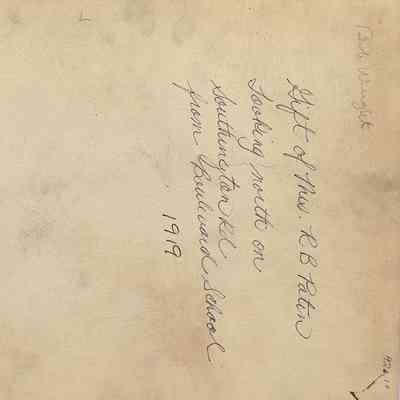 Gift of Mrs. R. B Patin
Looking north on
Southington Rd
from Boulevard School
1919